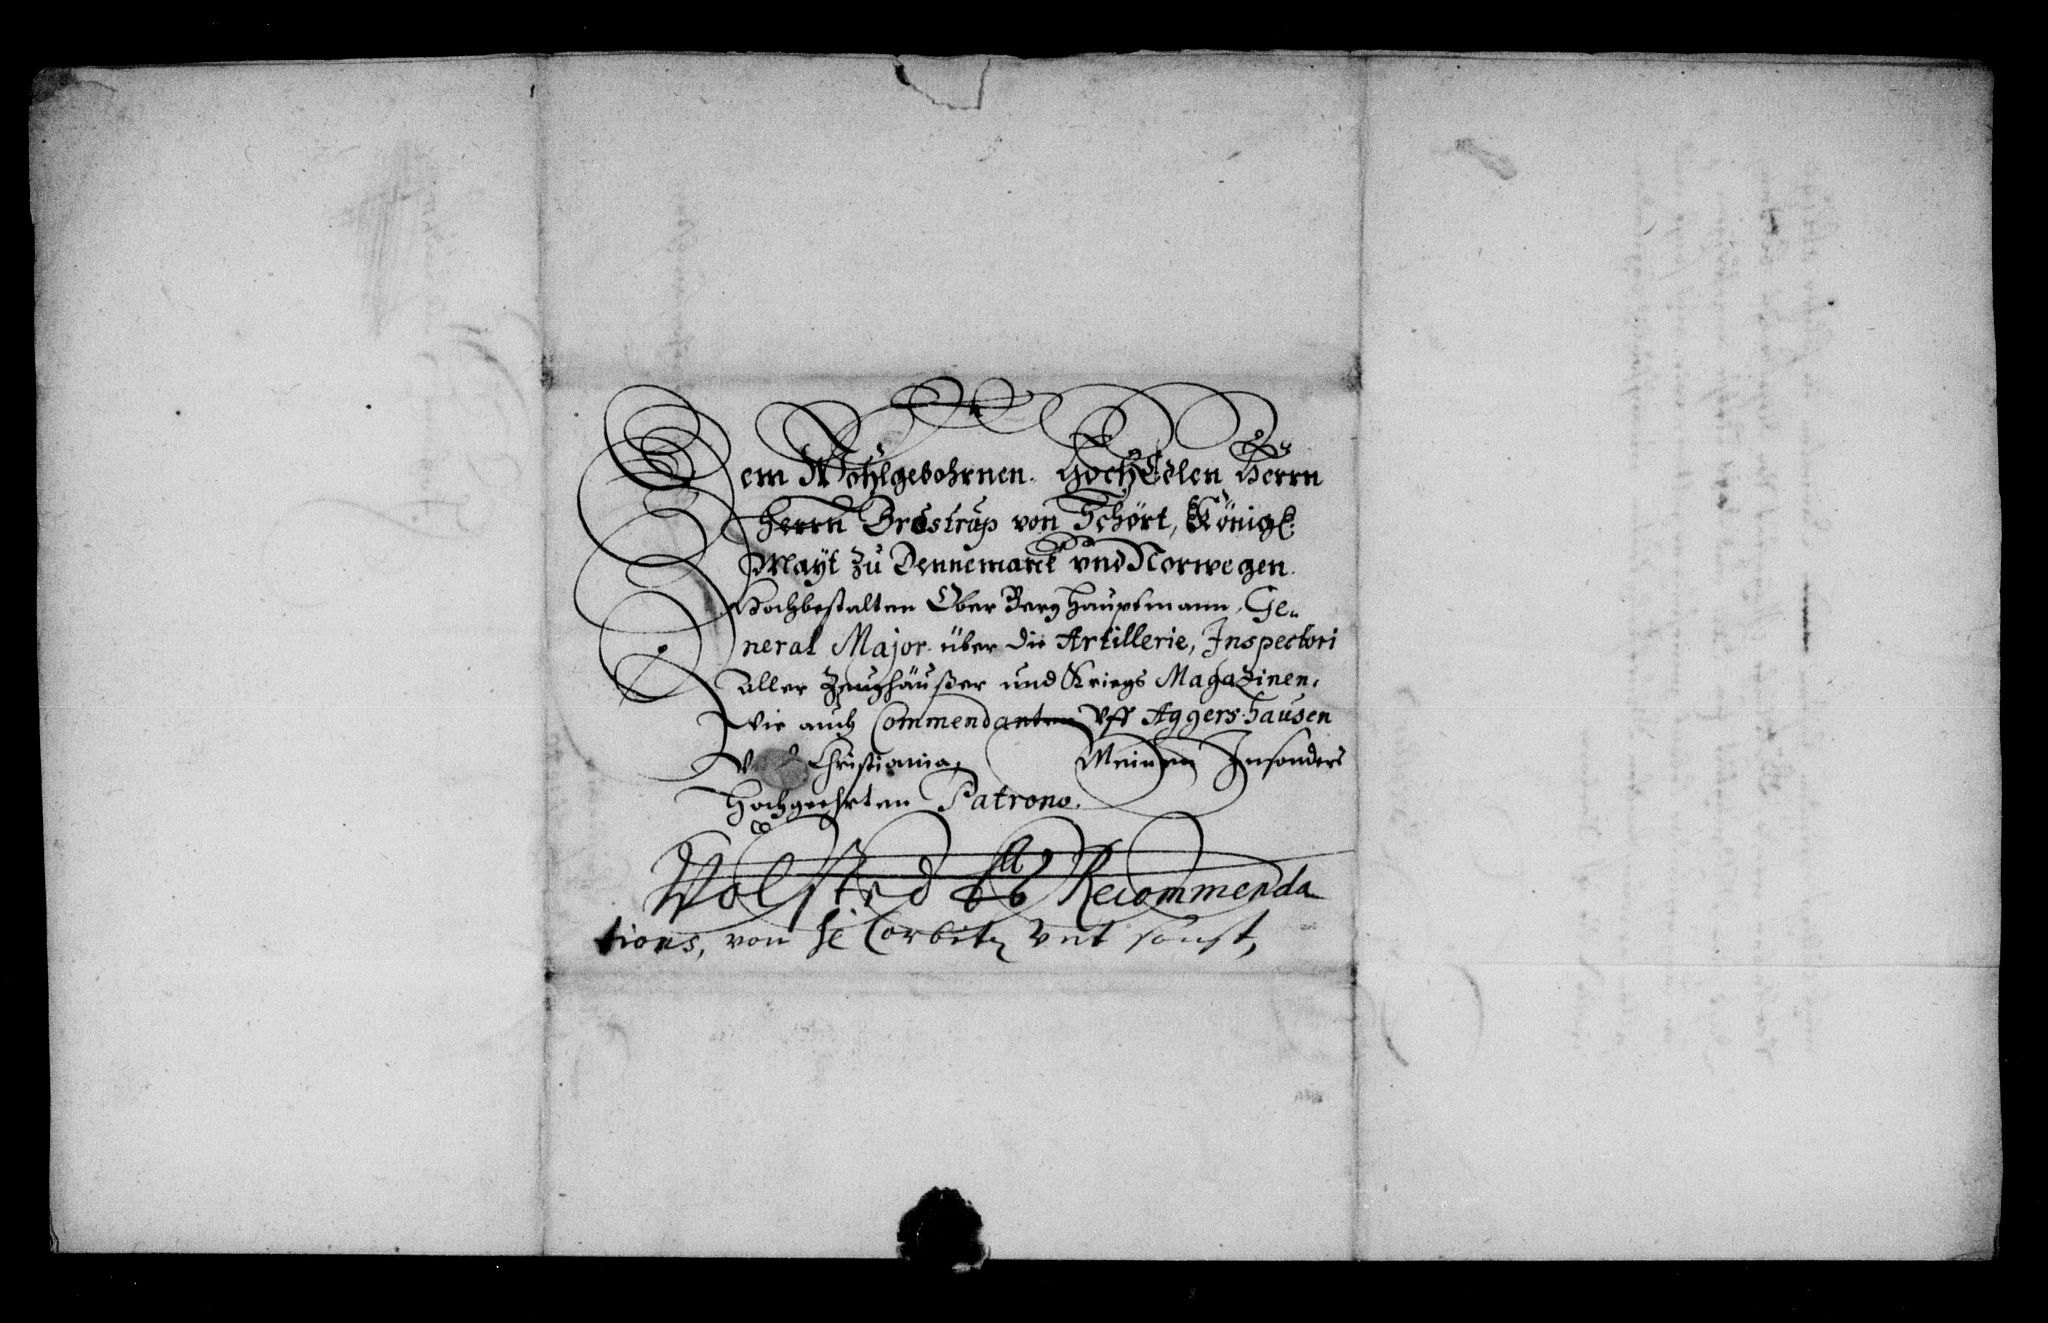 Dem Wohlgebohrnen HochEdlen Herrn
Herrn Brostrup von Schört, Königl:
Mayt zu Dennemarck vnd Norwegen
Hochbestalten Ober Berg Hauptmann, Ge-
neral Major über die Artillerie, Inspectori
aller Zeughäußer und Kriegs Magazinen,
Wie auch Commendanten Vff Aggershausen
Christiania, Meinem Insonders
Hochgeehrten Patrono.
Wolsted Recommenda
tions, von Corbitz Vnt sonst,